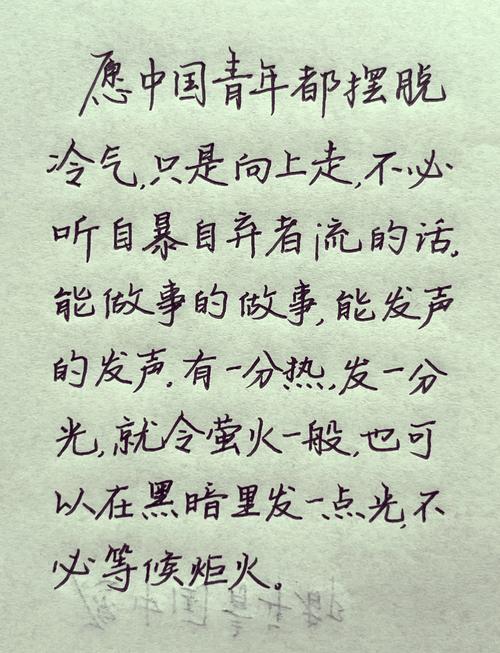 愿中国青年都摆脱
冷气,只是向上走,不必
听自暴自弃者流的话,
能做事的做事,能发声
的发声.有一分热,发一分
光,就令萤火一般,也可
以在黑暗里发一点光,不
必等候炬火。